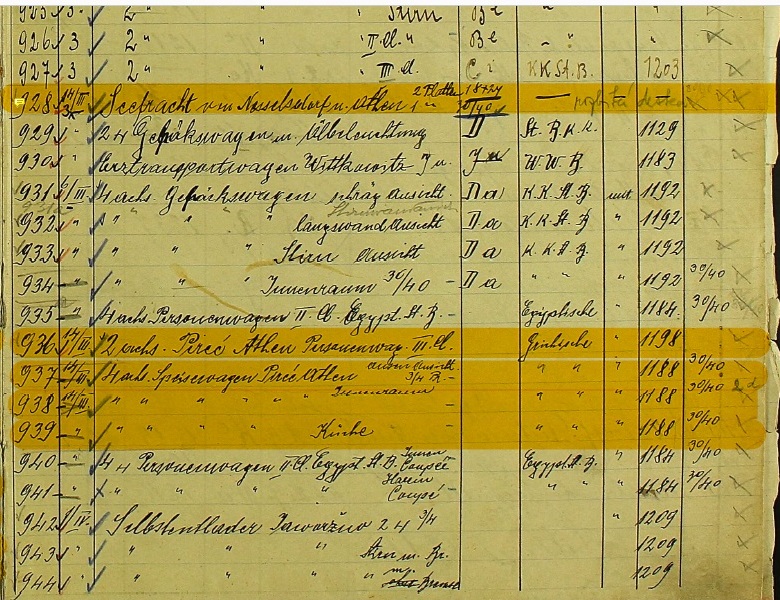 925 2 " " Stirn Be
926 3 2 " " II. Cl. " Be " "
927 3 2 " " III Cl. Ci K K St. B. 1203
928 14/III Seefracht von Nesselsdorf n. Athen 2 Platten 18×24 1 " 30/40 —
929 " 2 4 Gepäkswagen m. Ölbeleuchtung D St. B. K. K. 1129
930 " wagen Wittkowitz J u. W. W. B. 1183
931 /III 4 achs. Gepäckswagen schräg Ansicht. D a K. K. St. B. mit 1192
932 " " " " langswand Ansicht D a K. K. St. B " 1192
933 " " " " Stirn Ansicht D a K. K. St. B. " 1192
934 " " " " Innenraum 30/40 — D a " " " 1192 30/40
935 " 4 achs. Personenwagen II. Cl. Egypt. St. B. — Egyptische " 1184. 30/40
936 14/III 2 achs. Pireé Athen Personenwag. III. Cl. Griechische " 1198
937 14/III 4 achs. Speisewagen Pireé Athen aussen Ansicht 3/4 R. — " " " 1188 30/40
938 14/III " " " " " Innenraum — " " " 1188 30/40
939 " " " " " Küche — " " " 1188 30/40
940 " 4 4 Personenwagen II. Cl. Egypt. St. B. Innen Coupée Egypt. St. B. " 1184 30/40
941 " " " " " Harem Coupé — " " " 1184 30/40
942 1/IV. Selbstentlader Jaworžno 2 4 3/4 " 1209
943 " " " " Stirn m. Br. 1209
944 " " " " " Bremse 1209